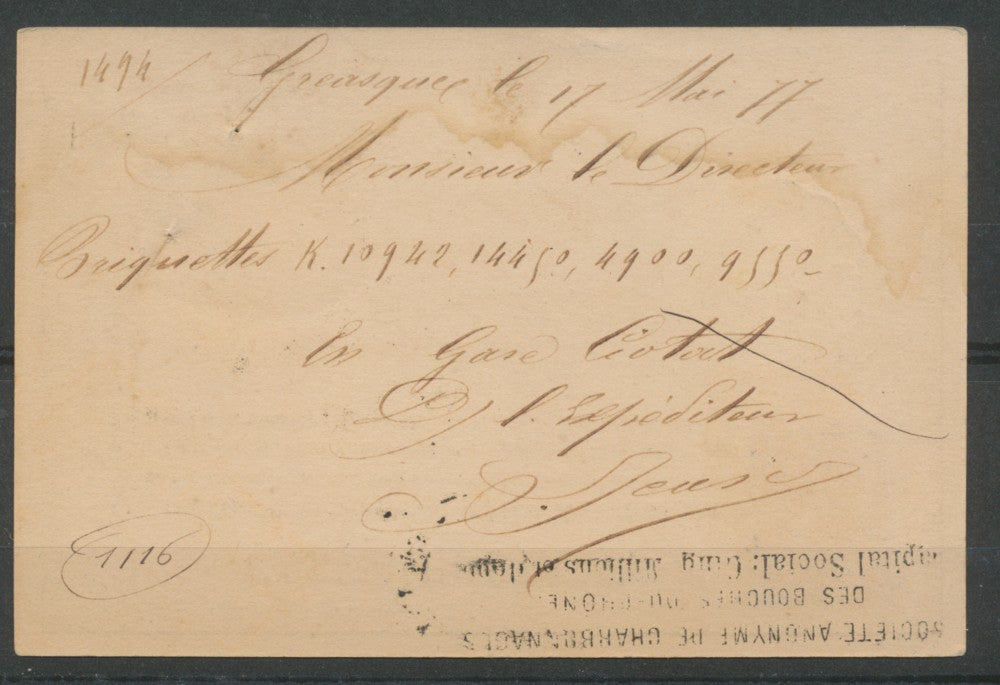 1494
Greasque le 17 Mai 77
Monsieur le Directeur
Briquettes K. 10942, 14450, 4900, 9550
En Gare Ciotat
P. l'Expéditeur
1116
SOCIÉTÉ ANONYME DE CHARBONNAGES
DES BOUCHES DU-RHONE.
Capital Social: Cinq Millions